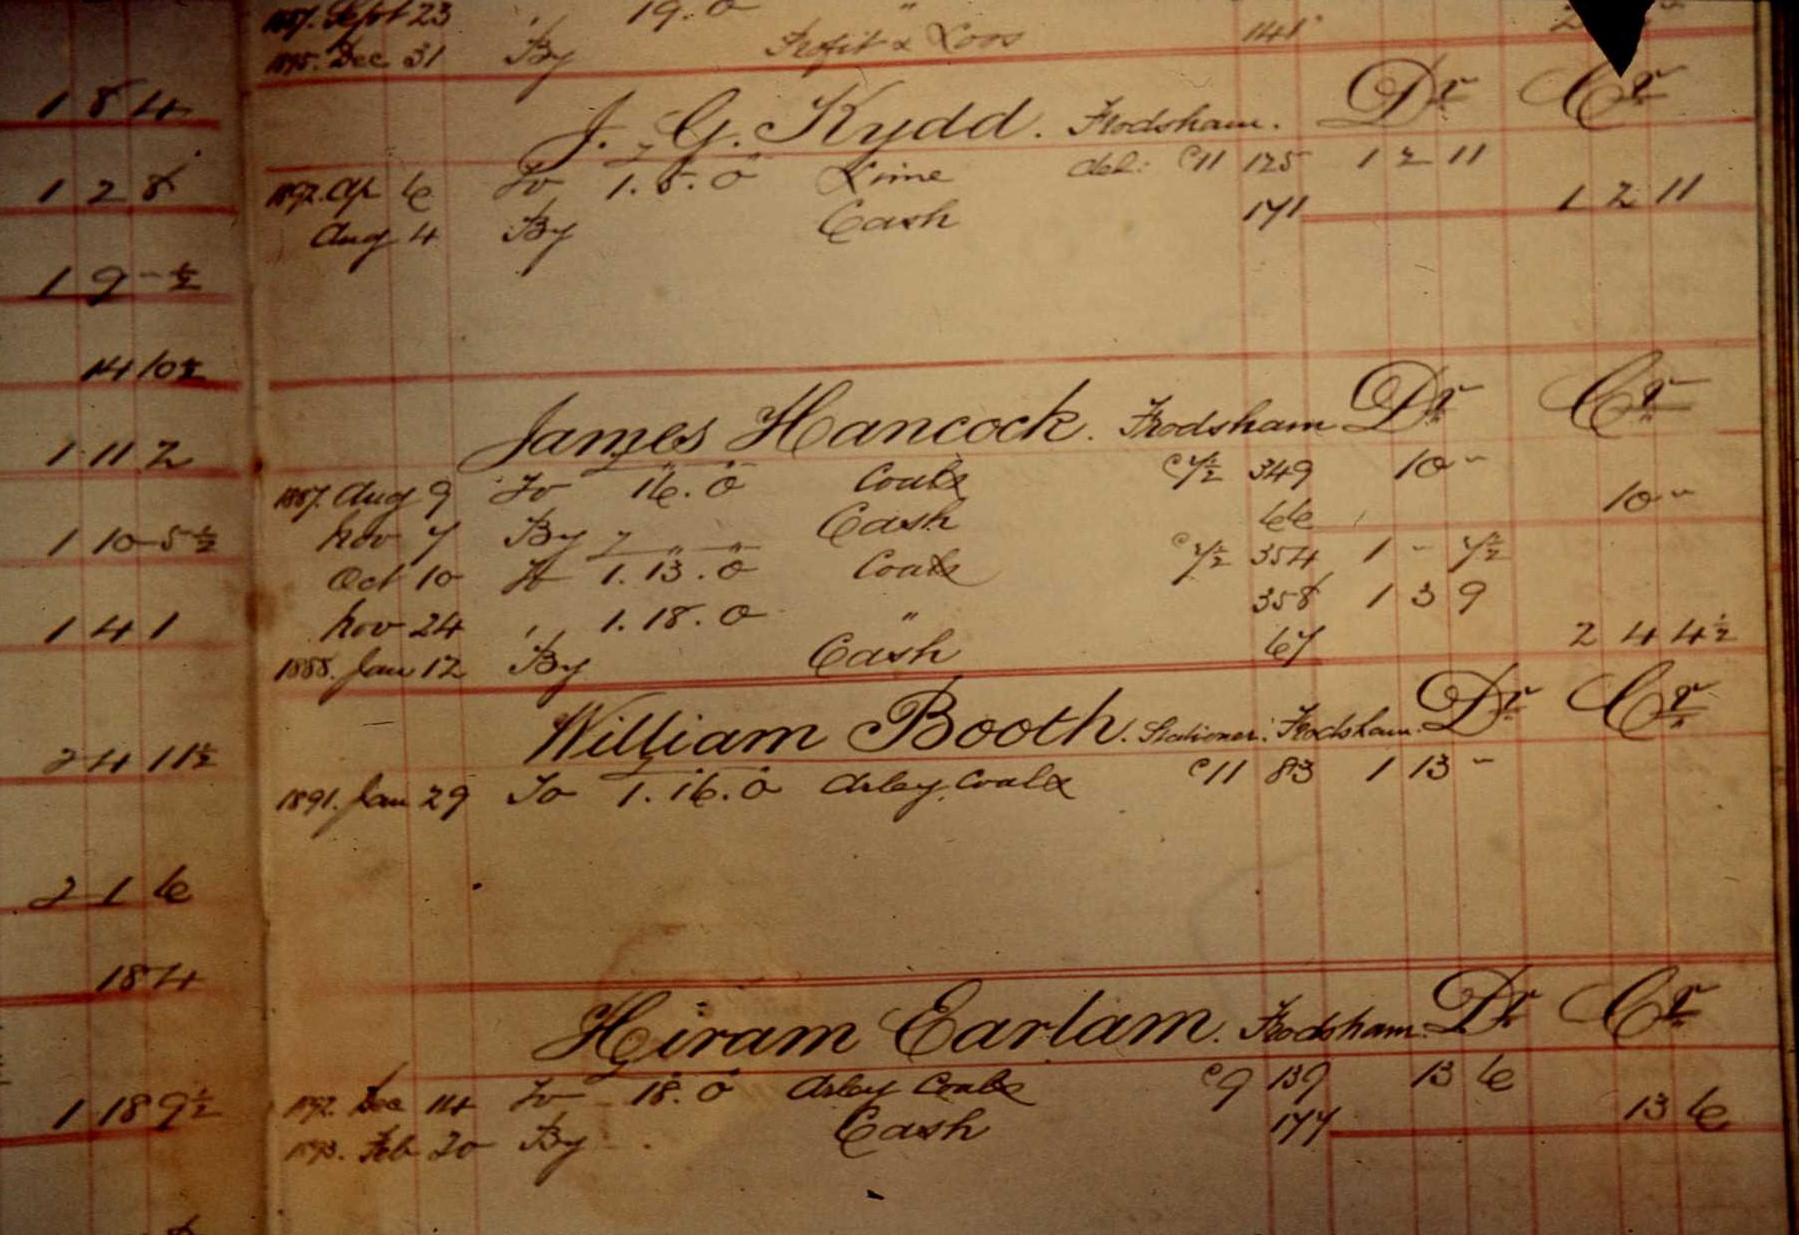 184
128
19-½
14 10½
1 11 2
1 10 5½
1 4 1
2 4 11½
2 1 6
18 4
1 18 9½
1887. Sept 23 " 19. 0 "
1895. Dec 31 By Profit & Loss 141
J. G. Kydd. Frodsham. Dr Cr
1892. Ap 6 To 1. 5. 0 Lime del: @11 125 1 2 11
Aug 4 By Cash 171 1 2 11
James Hancock. Frodsham Dr Cr
1887. Aug 9 To 16. 0 Coals @7½ 349 10 -
Nov 7 By Cash 66 10 -
Oct 10 To 1. 13. 0 Coals @7½ 354 1 - 7½
Nov 24 " 1. 18. 0 " 358 1 3 9
1888. Jan 12 By Cash 67 2 4 4½
William Booth. Stationer. Frodsham. Dr Cr
1891. Jan 29 To 1. 16. 0 Arley Coals @11 83 1 13 -
Hiram Earlam. Frodsham. Dr Cr
1892. Dec 14 To 18. 0 Arley Coals @9 139 13 6
1893. Feb 20 By Cash 177 13 6